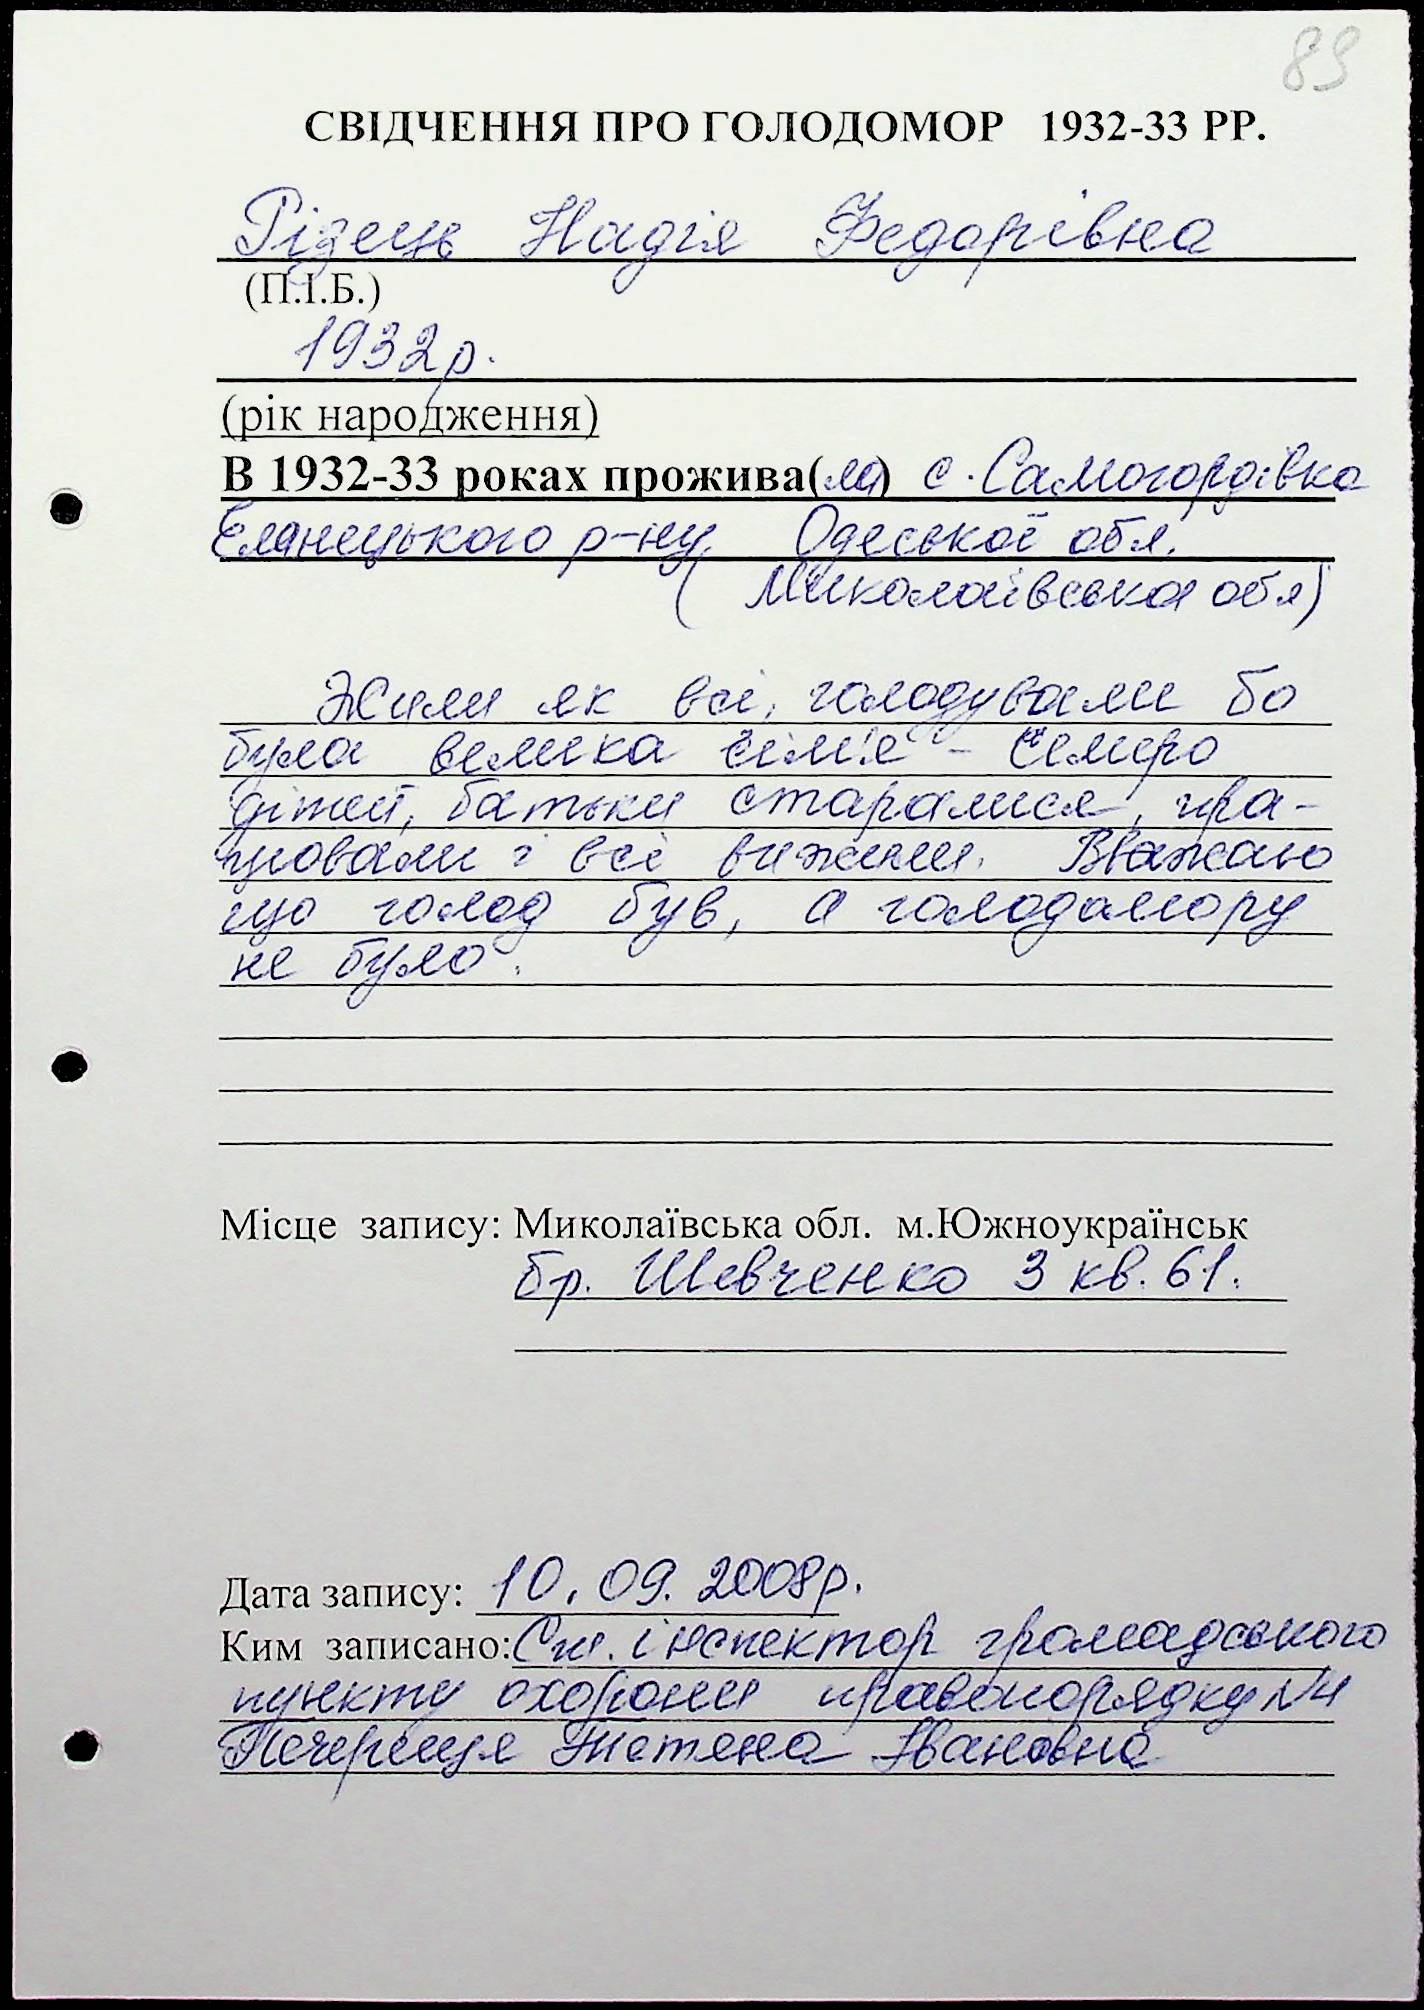 89
СВІДЧЕННЯ ПРО ГОЛОДОМОР 1932-33 РР.
Рідець Надія Федорівна
(П.І.Б.)
1932р.
(рік народження)
В 1932-33 роках прожива(ла) с. Самогордівка
Єланецького р-ну, Одеської обл.
( Миколаївська обл)
Жили як всі, голодували бо
була велика сім'я - семеро
дітей, батьки старалися, пра-
цювали і всі вижили. Вважаю
що голод був, а голодомору
не було.
Місце запису: Миколаївська обл. м.Южноукраїнськ
бр. Шевченко 3 кв. 61.
Дата запису: 10.09.2008р.
Ким записано: Ст. інспектор громадського
пункту охорони правопорядку №4
Печериця Тетяна Івановна